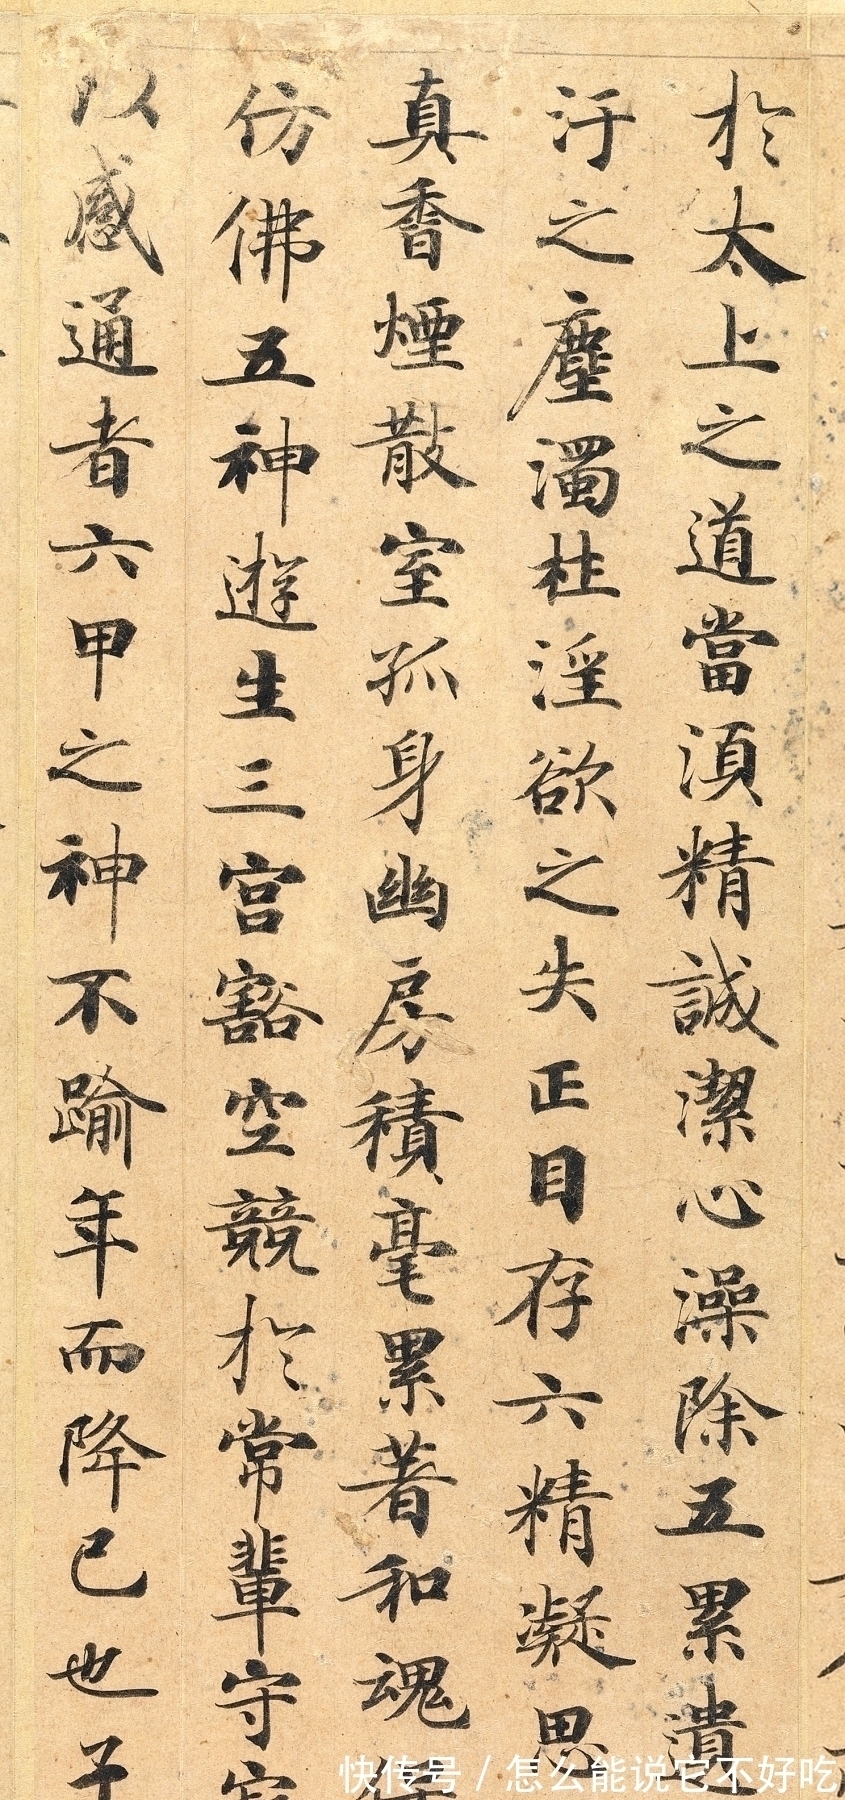 於太上之道當湏精誠潔心澡除五累遺
汙之塵濁杜淫欲之失正目存六精凝思
真香煙散室孤身幽房積毫累著和魂
仿佛五神遊生三宫豁空競於常輩守
以感通者六甲之神不踰年而降已也子
快传号/怎么能说它不好吃